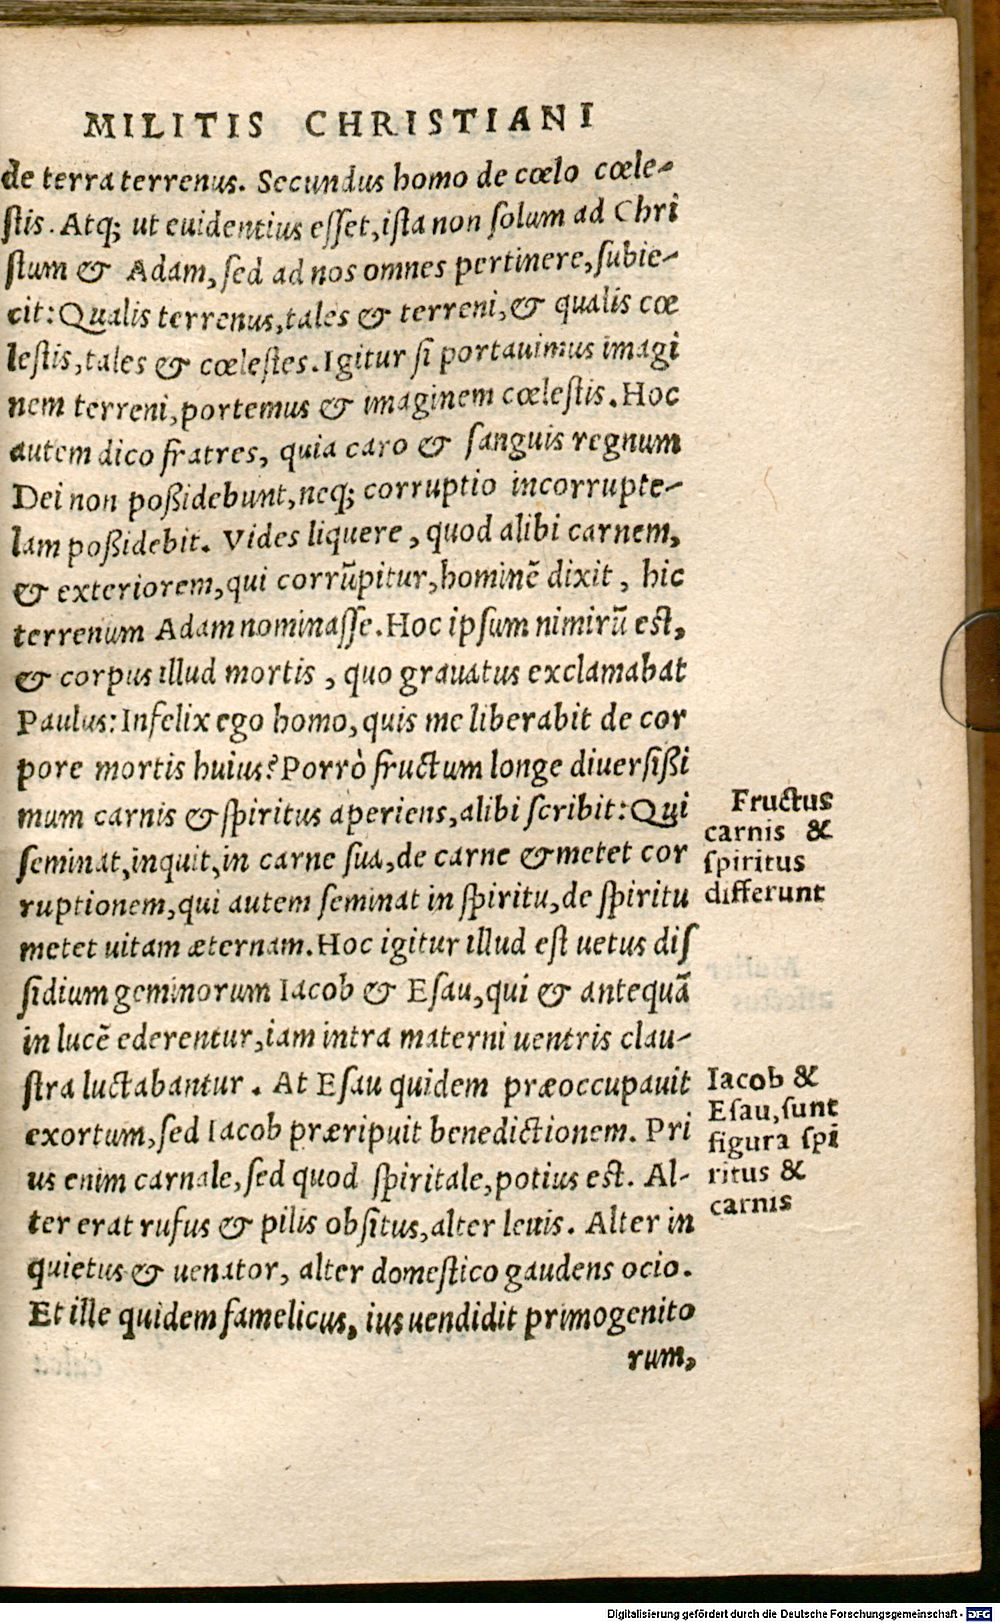 MILITIS CHRISTIANI
de terra terrenus. Secundus homo de cœlo cœle-
stis. Atq; ut euidentius esset, ista non solum ad Chri
stum & Adam, sed ad nos omnes pertinere, subie-
cit: Qualis terrenus, tales & terreni, & qualis cœ
lestis, tales & cœlestes. Igitur si portauimus imagi
nem terreni, portemus & imaginem cœlestis. Hoc
autem dico fratres, quia caro & sanguis regnum
Dei non poßidebunt, neq; corruptio incorrupte-
lam poßidebit. Vides liquere, quod alibi carnem,
& exteriorem, qui corrũpitur, hominẽ dixit, hic
terrenum Adam nominasse. Hoc ipsum nimirũ est,
& corpus illud mortis, quo grauatus exclamabat
Paulus: Infelix ego homo, quis me liberabit de cor
pore mortis huius? Porrò fructum longe diuersißi
mum carnis & spiritus aperiens, alibi scribit: Qui
seminat, inquit, in carne sua, de carne & metet cor
ruptionem, qui autem seminat in spiritu, de spiritu
metet uitam æternam. Hoc igitur illud est uetus dis
sidium geminorum Iacob & Esau, qui & antequã
in lucẽ ederentur, iam intra materni uentris clau-
stra luctabantur. At Esau quidem præoccupauit
exortum, sed Iacob præripuit benedictionem. Pri
us enim carnale, sed quod spiritale, potius est. Al-
ter erat rufus & pilis obsitus, alter leuis. Alter in
quietus & uenator, alter domestico gaudens ocio.
Et ille quidem famelicus, ius uendidit primogenito
rum,
Fructus
carnis &
spiritus
differunt
Iacob &
Esau, sunt
figura spi
ritus &
carnis
Digitalisierung gefördert durch die Deutsche Forschungsgemeinschaft - DFG